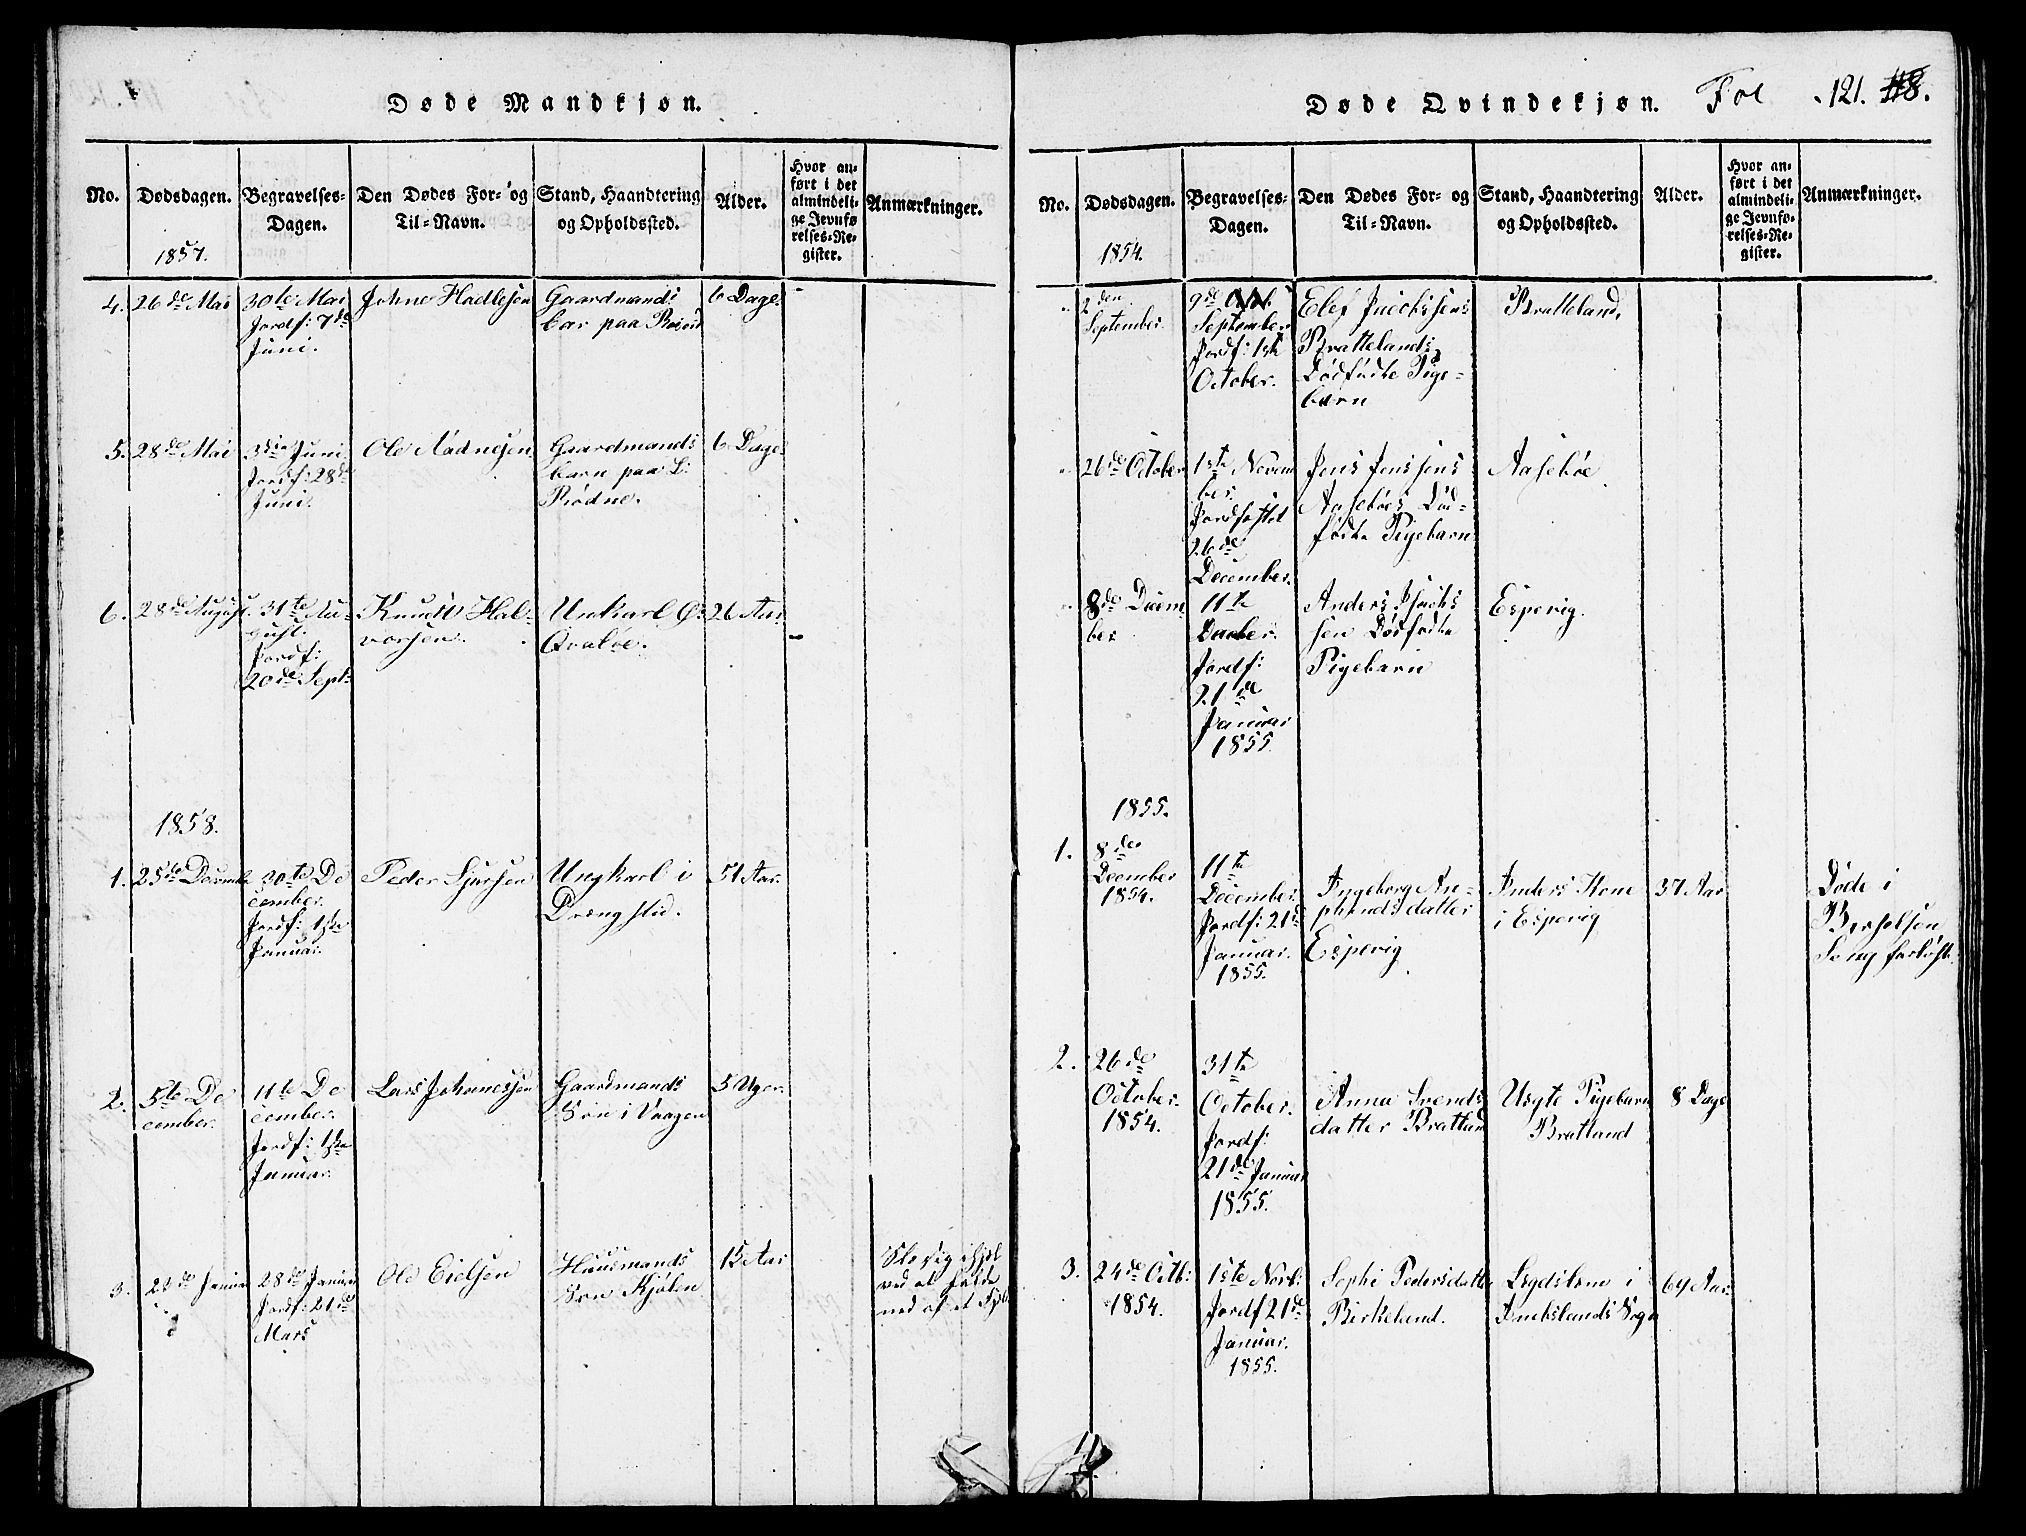 Døde Mandkjøn.
No. Dødsdagen. Begravelses-Dagen. Den Dødes For- og Til-Navn. Stand, Haandtering og Opholdssted. Alder. Hvor anført i det almindelige Jevnførelses-Register. Anmærkninger.
1857.
4. 26de Mai 30te Mai Johne Hadlesen Gaardmands 6 Dage
Jordf: 7de barn paa
Juni.
5. 28de Mai 3die Juni Ole Aadnesen Gaardmands 6 Dage
Jordf: 28de barn paa L:
Juni. Rødne.
6. 28de August. 31te Au- Knudt Hal- Unkarl Ø: 26 Aar
gust. vorsen. Qvaløe.
Jordf:
20de Sept:
1858.
1. 25de Decembr 30te De Peder Sjursen Ungkarl i 51 Aar.
cember.
Jordf: 1ste
Januar.
2. 5te De 11te De Lars Johannessen Gaardmands 5 Uger.
cember. cember. Søn i Vaagen
Jordf: 1ste
Januar.
3. 22de Januar 28de Januar Ole Eielsen Huusmands 15 Aar Slog sig ihjel
Jordf: 21de Søn Kjølen ved at falde
Mars ned af et
Døde Qvindekjøn. Fol 121. 118.
No. Dødsdagen. Begravelses-Dagen. Den Dødes For- og Til-Navn. Stand, Haandtering og Opholdssted. Alder. Hvor anført i det almindelige Jevnførelses-Register. Anmærkninger.
1854.
2den 9de Elef Bratteland.
September. September Brattelands
Jordf: 1ste Dødfødte Pige-
October. barn
26de October 1ste Novem Jens Jensens Aasebøe.
ber. Aasebøes Død-
Jordfæstet fødte Pigebarn
26de
December.
8de Decem 11te Anders Espevig.
ber December. sen Dødfødte
Jordf: Pigebarn
21de
Januar
1855.
1855.
1. 8de 11te
December December. Ingeborg Anders Kone 37 Aar Døde i
1854. Jordf: 21de datter i Espevig Barselseng
Januar. Espevig
1855.
2. 26de 31te
October. October. Anna Svends Pigebarn 8 Dage
1854. Jordf: datter Bratland
21de Januar
1855.
3. 24de Octb: 1ste Novb: Sophi Pedersdatter i 69 Aar.
1854. Jordf 21de Birkeland. Sogn
Januar.
1855.